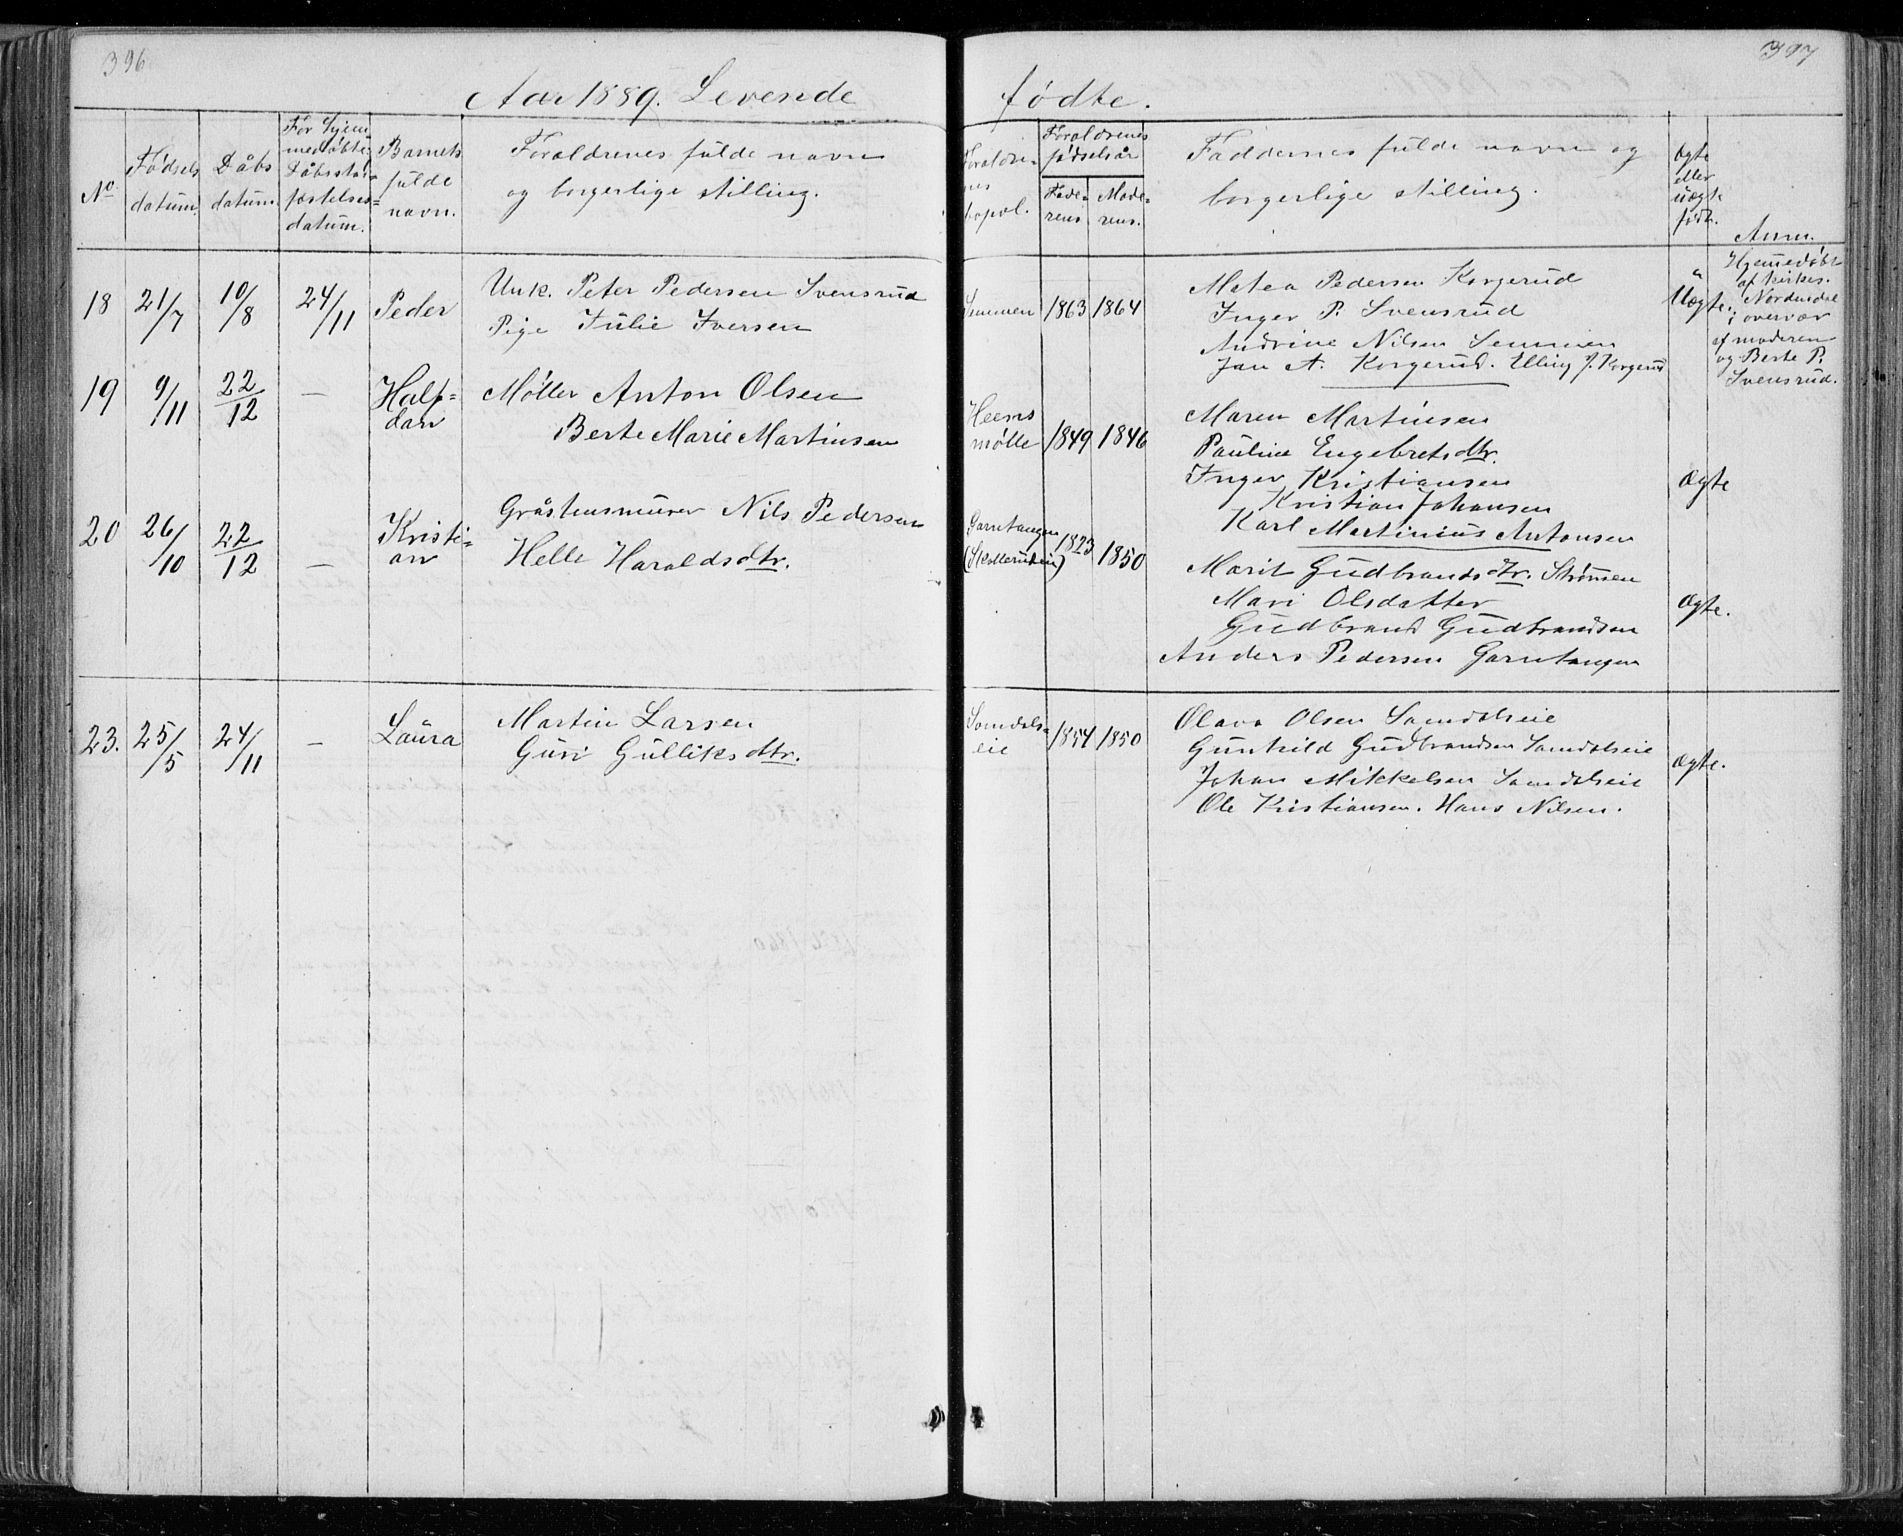 396
397
Aar 1889. Levende fødte.
No
Fødsels datum.
Dåbs datum.
For hjemmedøbte: Dåbsstadfæstelses= datum.
Barnets fulde navn.
Forældrenes fulde navn og borgerlige stilling.
Forældrenes bopæl.
Forældrenes fødselsår
Faderens
Moderens.
Faddernes fulde navn og borgerlige stilling.
Ægte eller uægte født.
Anm.
18 21/7 10/8 24/11 Peder
Unk. Peter Pedersen Svensrud
Pige Julie Iversen
Semmen 1863 1864
Matea Pedersen Korgerud
Inger P. Svensrud
Andrine Nilsen Semmen
Jan A. Korgerud. Elling J. Korgerud
Uægte.
Hjemmedøbt
af Kirkes.
Nordendal
i overvær
af moderen
og Berte P.
Svensrud.
19 9/11 22/12 — Half=
dan
Møller Anton Olsen
Berte Marie Martinsen
Heens
mølle 1849 1846
Maren Martinsen
Pauline Engebretsdtr.
Inger Kristiansen
Kristian Johansen
Karl Martinius Antonsen
Ægte
20 26/10 22/12 — Kristi=
an
Gråstensmurer Nils Pedersen
Helle Haraldsdtr.
Garntangen
(Skolleruden) 1823 1850
Marit Gudbrandsdtr. Strømsen
Mari Olsdatter
Gudbrand Gudbrandsen
Anders Pedersen Garntangen
Ægte.
23. 25/5 24/11 — Laura
Martin Larsen
Guri Gulliksdtr.
Somdals=
eie 1854 1850
Olava Olsen Somdalseie
Gunhild Gudbrandsen Somdalseie
Johan Mikkelsen Somdalseie
Ole Kristiansen. Hans Nilsen.
Ægte.